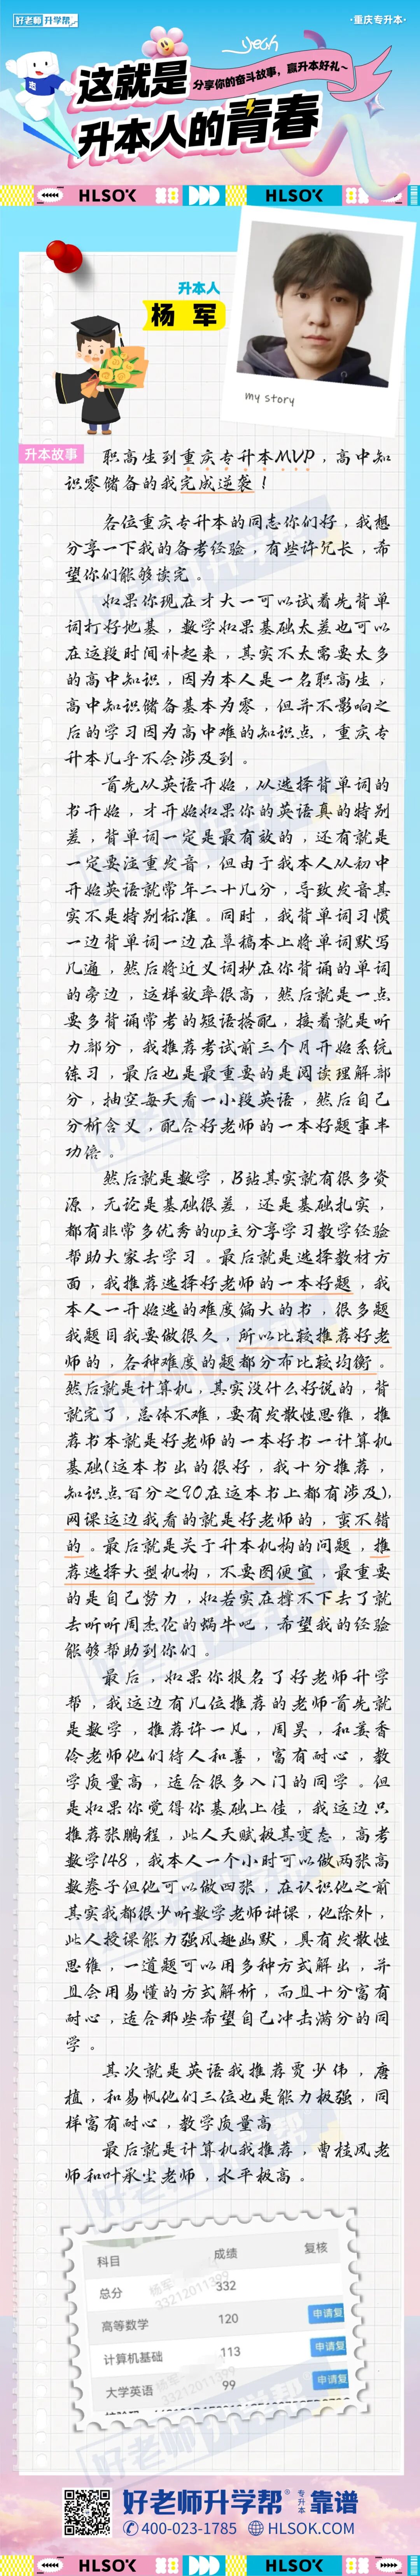 好老师 升学帮
·重庆专升本·
yeah
这就是
分享你的奋斗故事，赢升本好礼~
升本人的青春
HLSOK
HLSOK
升本人
杨 军
my story
升本故事
职高生到重庆专升本MVP，高中知
识零储备的我完成逆袭！
各位重庆专升本的同志你们好，我想
分享一下我的备考经验，有些许冗长，希
望你们能够读完。
如果你现在才大一可以试着先背单
词打好地基，数学如果基础太差也可以
在这段时间补起来，其实不太需要太多
的高中知识，因为本人是一名职高生，
高中知识储备基本为零，但并不影响之
后的学习因为高中难的知识点，重庆专
升本几乎不会涉及到。
首先从英语开始，从选择背单词的
书开始，才开始如果你的英语真的特别
差，背单词一定是最有效的，还有就是
一定要注重发音，但由于我本人从初中
开始英语就常年二十几分，导致发音其
实不是特别标准。同时，我背单词习惯
一边背单词一边在草稿本上将单词默写
几遍，然后将近义词抄在你背诵的单词
的旁边，这样效率很高，然后就是一点
要多背诵常考的短语搭配，接着就是听
力部分，我推荐考试前三个月开始系统
练习，最后也是最重要的是阅读理解部
分，抽空每天看一小段英语，然后自己
分析含义，配合好老师的一本好题事半
功倍。
然后就是数学，B站其实就有很多资
源，无论是基础很差，还是基础扎实，
都有非常多优秀的up主分享学习教学经验
帮助大家去学习。最后就是选择教材方
面，我推荐选择好老师的一本好题，我
本人一开始选的难度偏大的书，很多题
我题目我要做很久，所以比较推荐好老
师的，各种难度的题都分布比较均衡。
然后就是计算机，其实没什么好说的，背
就完了，总体不难，要有发散性思维，推
荐书本就是好老师的一本好书一计算机
基础(这本书出的很好，我十分推荐，
知识点百分之90在这本书上都有涉及)，
网课这边我看的就是好老师的，蛮不错
的。最后就是关于升本机构的问题，推
荐选择大型机构，不要图便宜，最重要
的是自己努力，如若实在撑不下去了就
去听听周杰伦的蜗牛吧，希望我的经验
能够帮助到你们。
最后，如果你报名了好老师升学
帮，我这边有几位推荐的老师首先就
是数学，推荐许一凡，周昊，和姜香
伶老师他们待人和善，富有耐心，教
学质量高，适合很多入门的同学。但
是如果你觉得你基础上佳，我这边只
推荐张鹏程，此人天赋极其变态，高考
数学148，我本人一个小时可以做两张高
数卷子但他可以做四张，在认识他之前
其实我都很少听数学老师讲课，他除外，
此人授课能力强风趣幽默，具有发散性
思维，一道题可以用多种方式解出，并
且会用易懂的方式解析，而且十分富有
耐心，适合那些希望自己冲击满分的同
学。
其次就是英语我推荐贾少伟，唐
植，和易帆他们三位也是能力极强，同
样富有耐心，教学质量高
最后就是计算机我推荐，曹桂凤老
师和叶承尘老师，水平极高。
科目 成绩 复核
总分 332
高等数学 120 申请复
计算机基础 113 申请复
大学英语 99 申请复
好老师升学帮® 专升本 靠谱
400-023-1785 HLSOK.COM
HLSOK
HLSOK